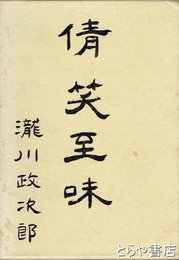 倩笑至味
瀧川政次郎
とらや書店